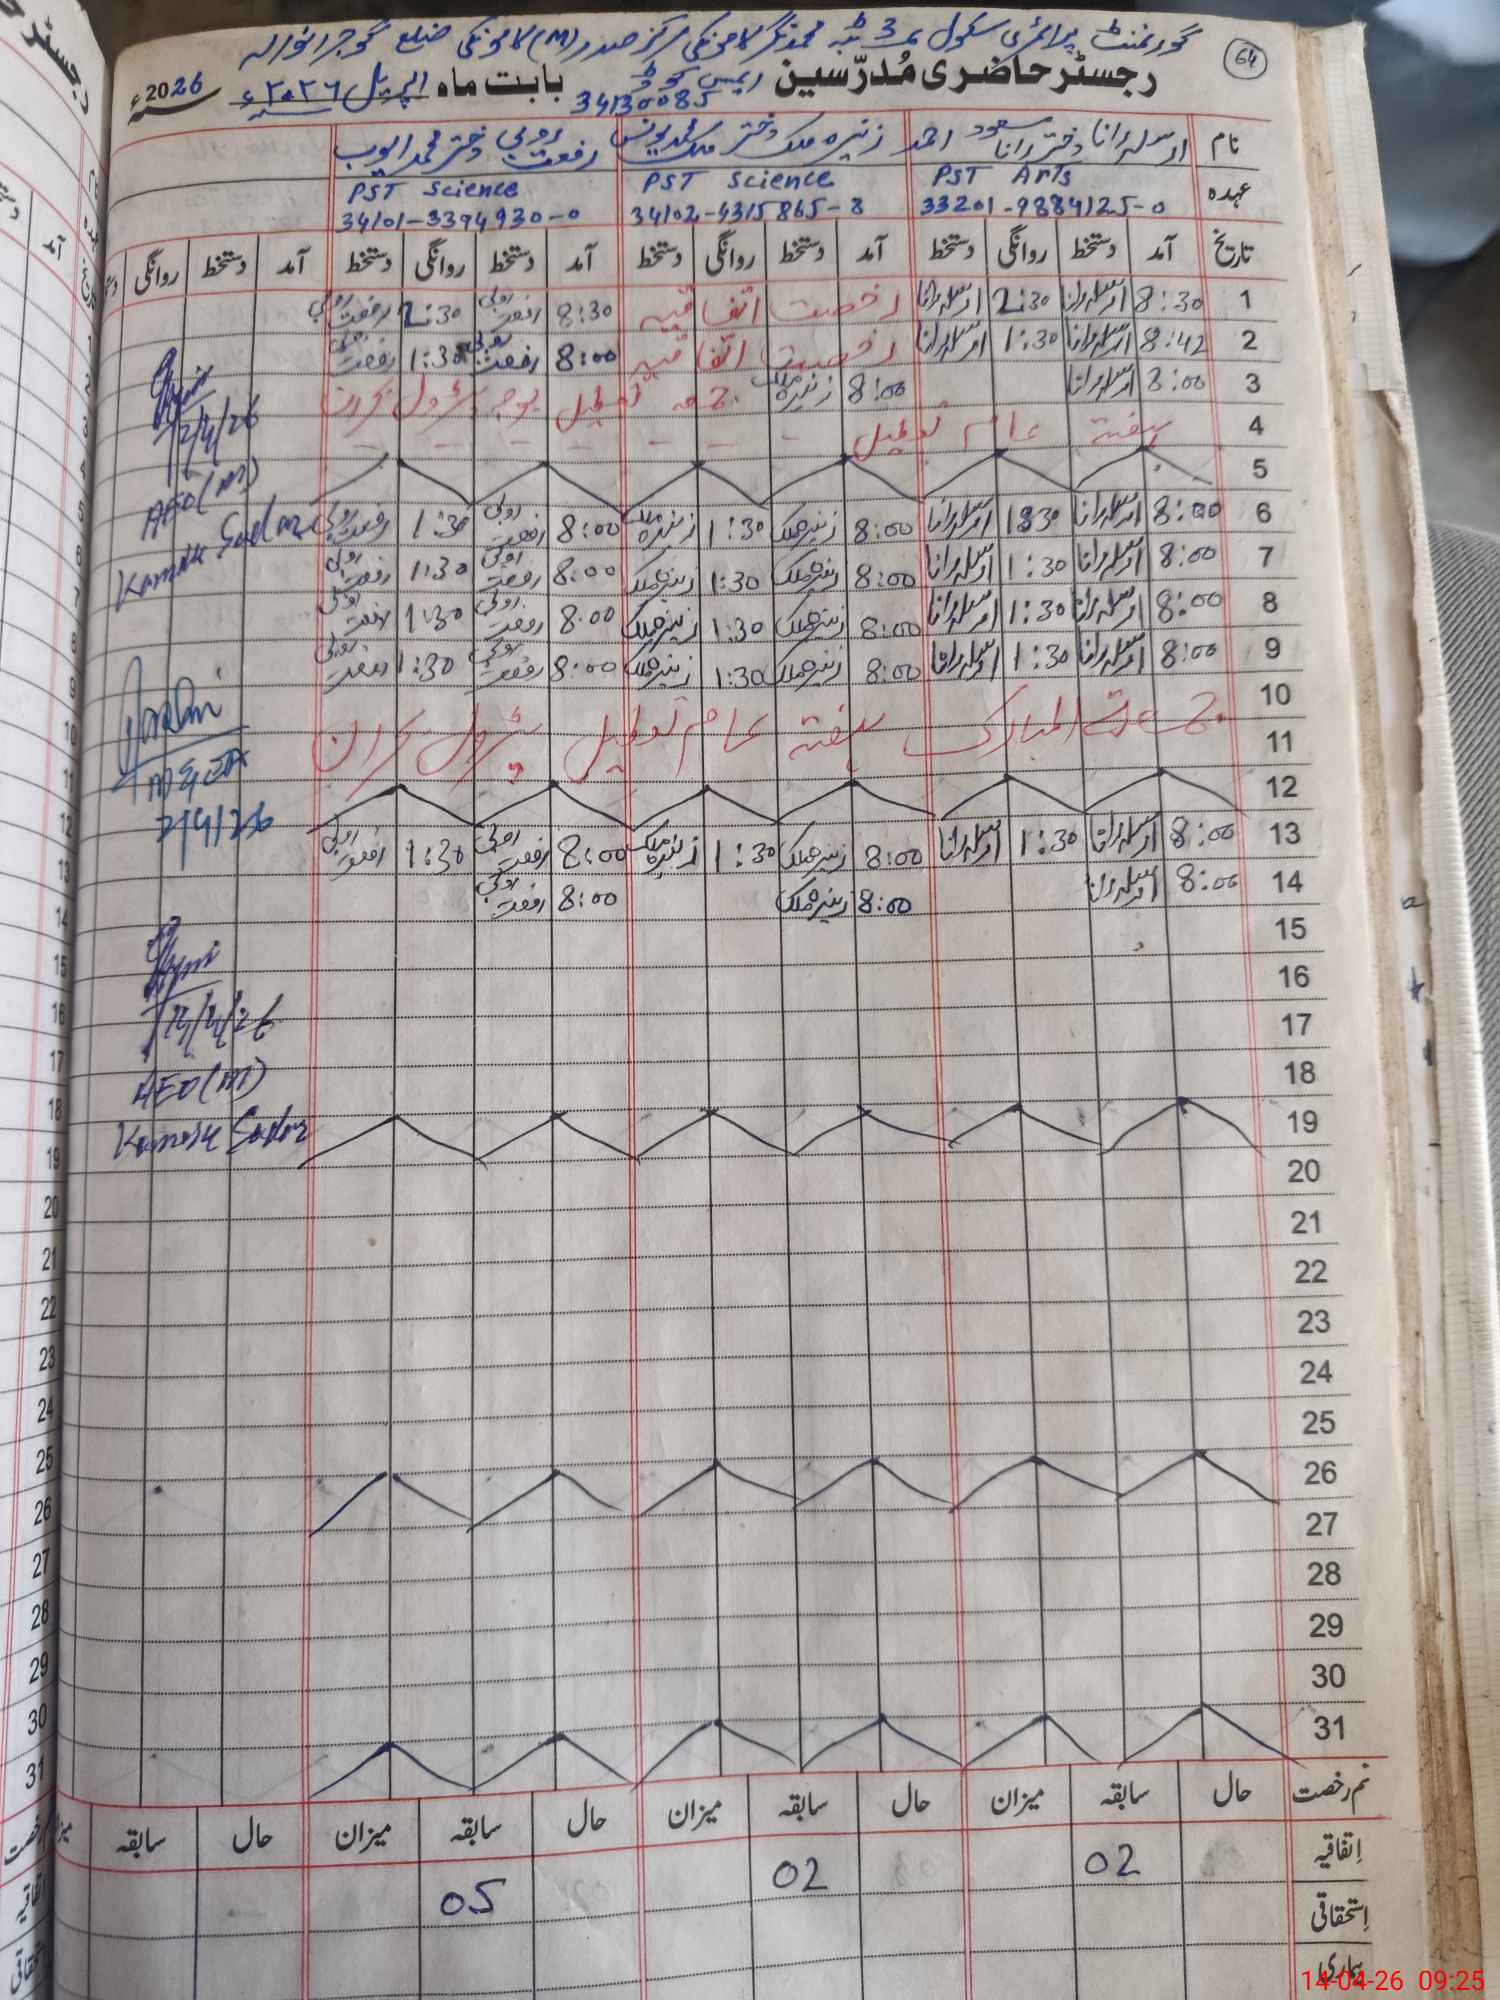 گورنمنٹ پرائمری سکول نمبر 3 ٹبہ محمد نگر کامونکی مرکز صدر (M) کامونکی ضلع گوجرانوالہ
64
رجسٹر حاضری مُدرّسین ایمس کوڈ 34130085 بابت ماہ اپریل ۲۰۲۶ء 2026ء
نام ارسلہ رانا دختر رانا سعود احمد زنیرہ ملک دختر ملک محمد یونس رفعت روبی دختر محمد ایوب
عہدہ PST Arts PST Science PST Science
33201-9884125-0 34102-4315865-8 34101-3394930-0
تاریخ آمد دستخط روانگی دستخط آمد دستخط روانگی دستخط آمد دستخط روانگی دستخط آمد دستخط روانگی
1 8:30 ارسلہ رانا 2:30 ارسلہ رانا رخصت اتفاقیہ 8:30 رفعت روبی 2:30 رفعت روبی
2 8:42 ارسلہ رانا 1:30 ارسلہ رانا رخصت اتفاقیہ 8:00 رفعت روبی 1:30 رفعت روبی
3 8:00 ارسلہ رانا 8:00 زنیرہ ملک جمعہ تعطیل بوجہ پٹرول بحران
4 ہفتہ عام تعطیل
5
6 8:00 ارسلہ رانا 1:30 ارسلہ رانا 8:00 زنیرہ ملک 1:30 زنیرہ ملک 8:00 رفعت روبی 1:30 رفعت روبی
7 8:00 ارسلہ رانا 1:30 ارسلہ رانا 8:00 زنیرہ ملک 1:30 زنیرہ ملک 8:00 رفعت روبی 1:30 رفعت روبی
8 8:00 ارسلہ رانا 1:30 ارسلہ رانا 8:00 زنیرہ ملک 1:30 زنیرہ ملک 8:00 رفعت روبی 1:30 رفعت روبی
9 8:00 ارسلہ رانا 1:30 ارسلہ رانا 8:00 زنیرہ ملک 1:30 زنیرہ ملک 8:00 رفعت روبی 1:30 رفعت روبی
10 جمعۃ المبارک ہفتہ عام تعطیل پٹرول بحران
11
12
13 8:00 ارسلہ رانا 1:30 ارسلہ رانا 8:00 زنیرہ ملک 1:30 زنیرہ ملک 8:00 رفعت روبی 1:30 رفعت روبی
14 8:00 ارسلہ رانا 8:00 زنیرہ ملک 8:00 رفعت روبی
15
16
17
18
19
20
21
22
23
24
25
26
27
28
29
30
31
AEO (M)
Kamoke Sadar
2/4/26
AEO (M)
Kamoke Sadar
نم رخصت حال سابقہ میزان حال سابقہ میزان حال سابقہ میزان حال سابقہ
اِتفاقیہ 02 02 05
اِستحقاقی
بیماری
14-04-26 09:25